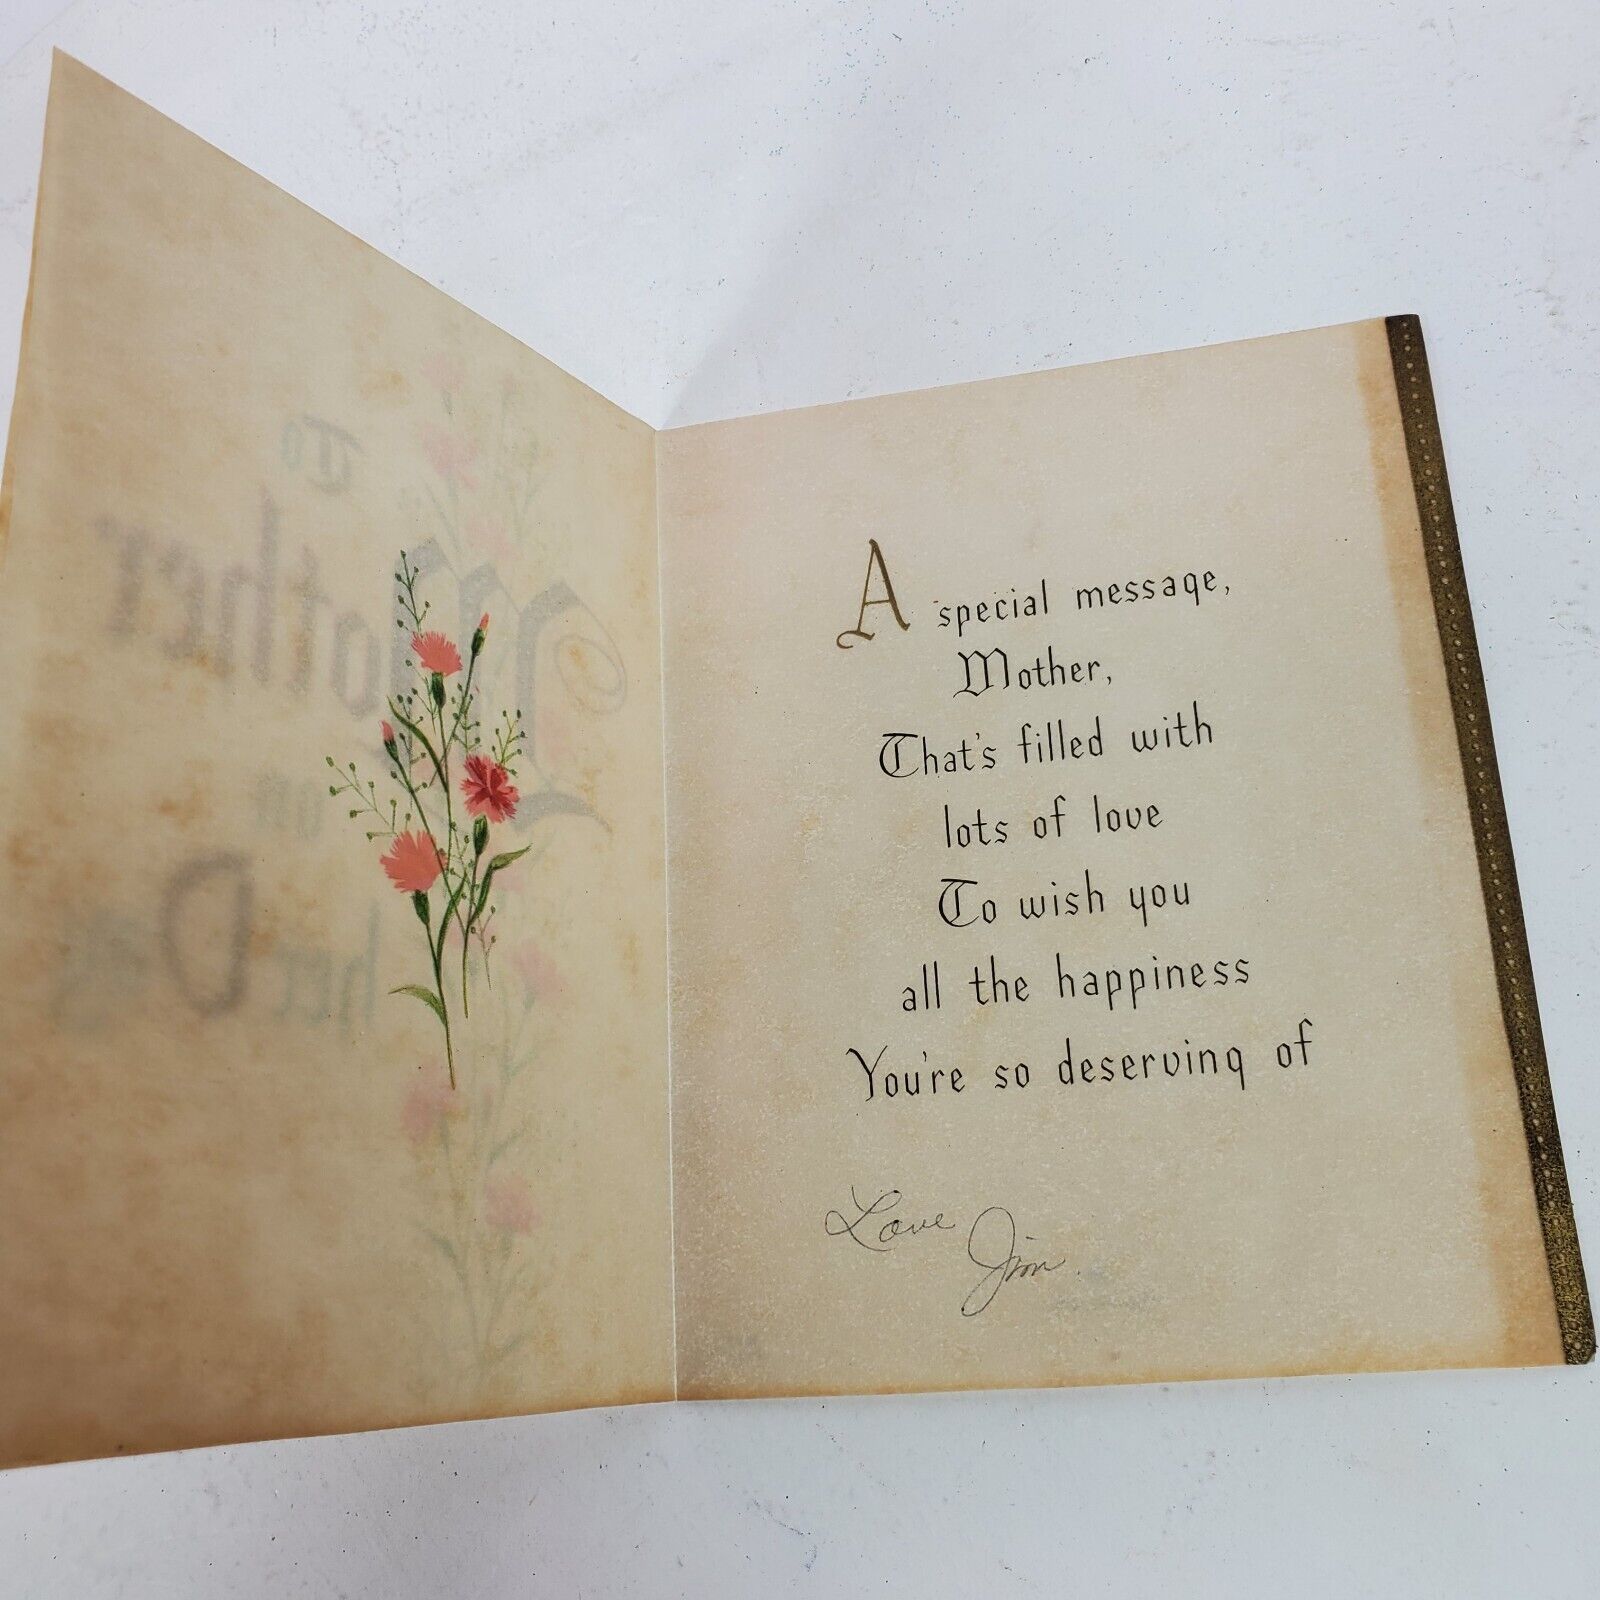 To
Mother
on
her Day
A special message,
Mother,
That's filled with
lots of love
To wish you
all the happiness
You're so deserving of
Love
Jim